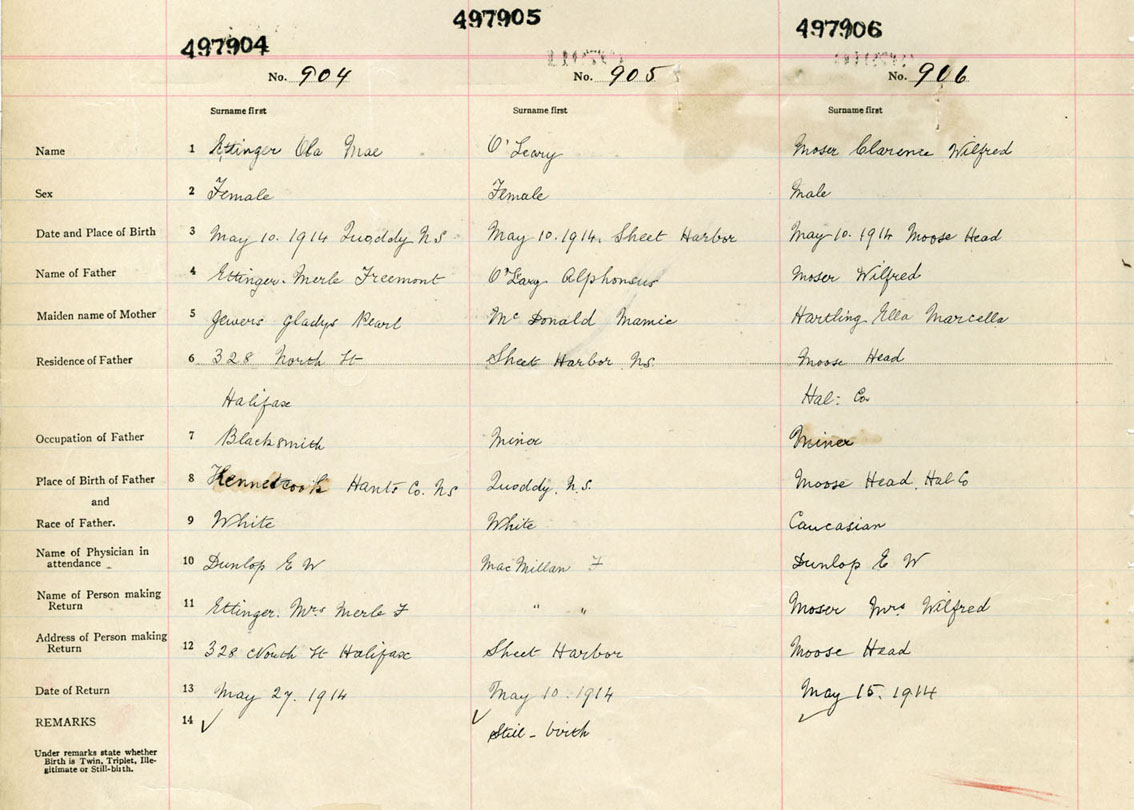 497904 497905 497906
No. 904 No. 905 No. 906
Surname first Surname first Surname first
Name 1 Ettinger Ola Mae O'Leary Moser Clarence Wilfred
Sex 2 Female Female Male
Date and Place of Birth 3 May 10. 1914 Quoddy N S May 10. 1914. Sheet Harbor May 10. 1914 Moose Head
Name of Father 4 Ettinger. Merle Freemont O'Leary Alphonsus Moser Wilfred
Maiden name of Mother 5 Jewers Gladys Pearl Mc Donald Mamie Hartling Ella Marcella
Residence of Father 6 328 North St Sheet Harbor N.S. Moose Head
Halifax Hal: Co
Occupation of Father 7 Blacksmith Miner Miner
Place of Birth of Father 8 Kennetcook Hants Co. NS Quoddy, N.S. Moose Head, Hal Co
and
Race of Father. 9 White White Caucasian
Name of Physician in
attendance 10 Dunlop E W MacMillan F Dunlop E W
Name of Person making
Return 11 Ettinger. Mrs Merle F " " Moser Mrs Wilfred
Address of Person making
Return 12 328 North St Halifax Sheet Harbor Moose Head
Date of Return 13 May 27. 1914 May 10. 1914 May 15. 1914
REMARKS 14 ✓ ✓ Still-birth ✓
Under remarks state whether
Birth is Twin, Triplet, Ille-
gitimate or Still-birth.